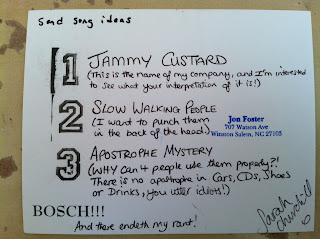 Send song ideas
1 JAMMY CUSTARD
(This is the name of my company, and I'm interested
to see what your interpretation of it is!)
2 SLOW WALKING PEOPLE
(I want to punch them
in the back of the head.)
Jon Foster
707 Watson Ave
Winston Salem, NC 27103
3 APOSTROPHE MYSTERY
(WHY can't people use them properly?!
There is no apostrophe in Cars, CDs, Shoes
or Drinks, you utter idiots!)
BOSCH!!!
And there endeth my rant!
Sarah